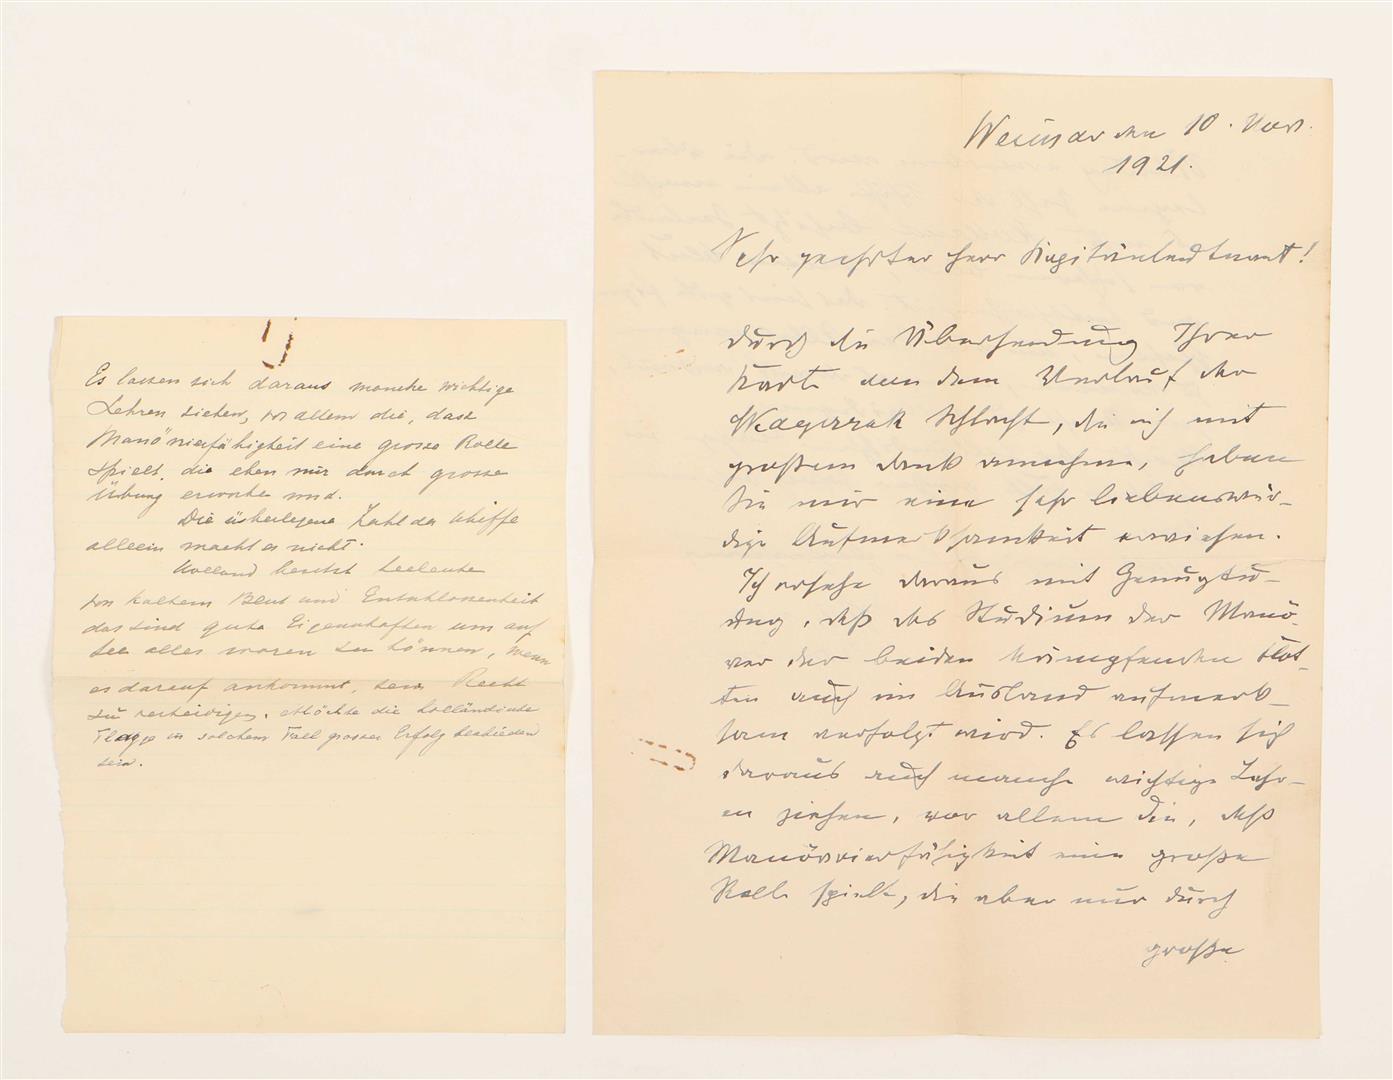 Es lassen sich daraus manche wichtige
Lehren ziehen, vor allem die, dass
Manövrierfähigkeit eine grosse Rolle
spielt, die eben nur durch grosse
Übung erworben wird.
Die überlegene Zahl der Schiffe
allein macht es nicht.
Holland besitzt Seeleute
von kaltem Blut und Entschlossenheit
das sind gute Eigenschaften um auf
See alles wagen zu können, wenn
es darauf ankommt, sein Recht
zu verteidigen. Möchte die holländische
Flagge in solchem Fall grosser Erfolg beschieden
sein.
Weimar den 10. Nov.
1921.
Sehr geehrter Herr Kapitänleutnant!
Durch die Übersendung Ihrer
Karte von dem Verlauf der
Skagerrak Schlacht, die ich mit
großem Dank annehme, haben
Sie mir eine sehr liebenswür-
dige Aufmerksamkeit erwiesen.
Ich ersehe daraus mit Genugtu-
ung, daß das Studium der Manö-
ver der beiden kämpfenden Flot-
ten auch im Ausland aufmerk-
sam verfolgt wird. Es lassen sich
daraus auch manche wichtige Lehr-
en ziehen, vor allem die, daß
Manövrierfähigkeit eine große
Rolle spielt, die aber nur durch
große